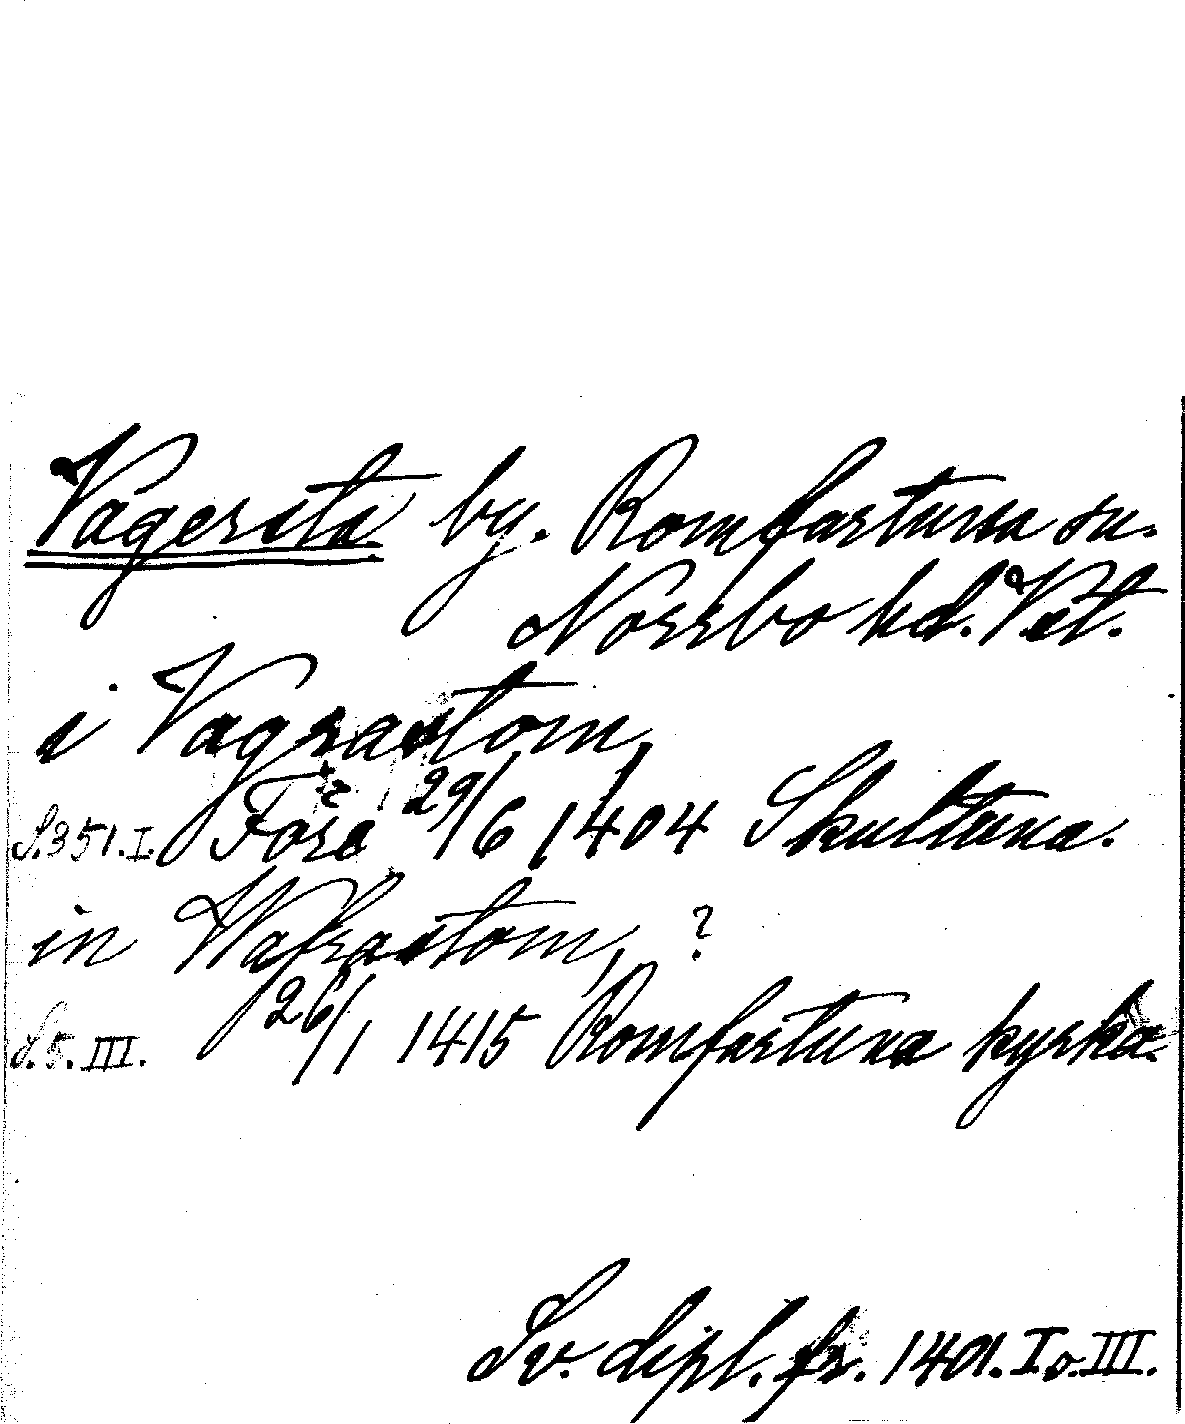 Vågersta by. Romfartuna sn.
Norrbo hd. Vstl.
i Vagrastom,
S.351.I. Före 29/6 1404 Skultuna.
in Wakrastom, ?
S.5.III. 26/1 1415 Romfartuna kyrka.
Sv. dipl. fr. 1401. I o. III.